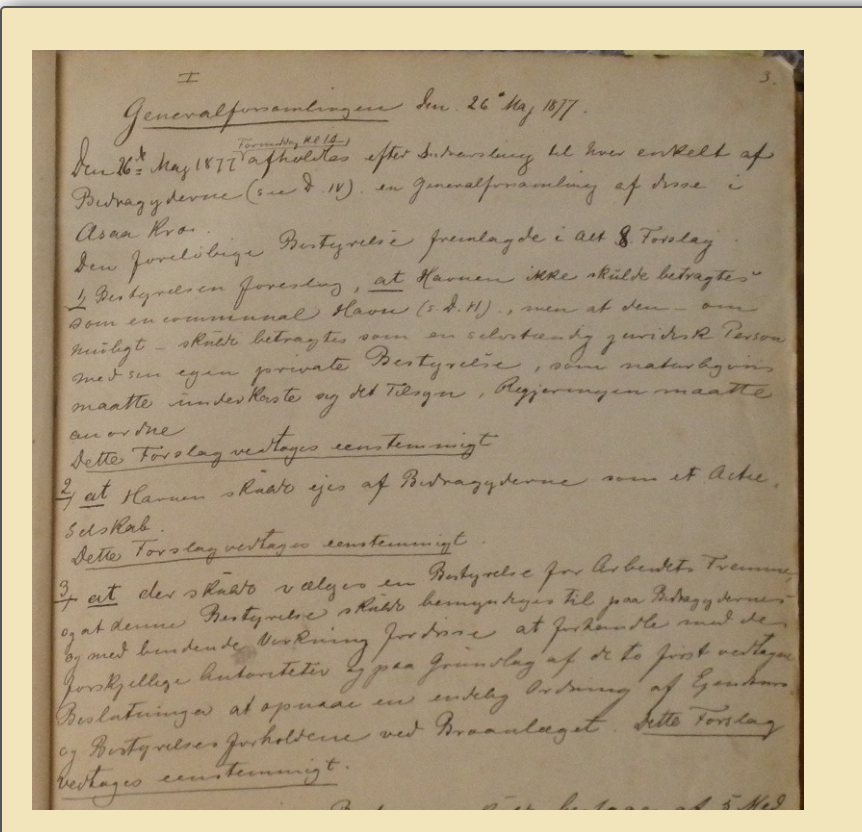 I
3.
Generalforsamlingen den 26' Maj 1877.
Formiddag Kl 12
Den 26de Maj 1877 afholdtes efter Indvarsling til hver enkelt af
Bidragyderne (see D. IV). en Generalforsamling af disse i
Asaa Kro.
Den foreløbige Bestyrelse fremlagde i alt 8 Forslag
1, Bestyrelsen foreslog, at Havnen ikke skulde betragtes
som en communal Havn (s. D. H)., men at den - om
muligt - skulde betragtes som en selvstændig juridisk Person
med sin egen private Bestyrelse, som naturligviis
maatte underkaste sig det Tilsyn, Regjeringen maatte
anordne
Dette Forslag vedtages eenstemmigt
2, at Havnen skulde ejes af Bidragyderne som et Actie-
selskab.
Dette Forslag vedtages eenstemmigt.
3, at der skulde vælges en Bestyrelse for Arbeidets Fremme,
og at denne Bestyrelse skulde bemyndiges til paa Bidragydernes
og med bindende Virkning for disse at forhandle med de
forskjellige Autoriteter og paa Grundlag af de to først vedtagne
Beslutninger at opnaae en endelig Ordning af Ejendoms
og Bestyrelsesforholdene ved Broanlæget. Dette Forslag
vedtages eenstemmigt.
af 5 Med